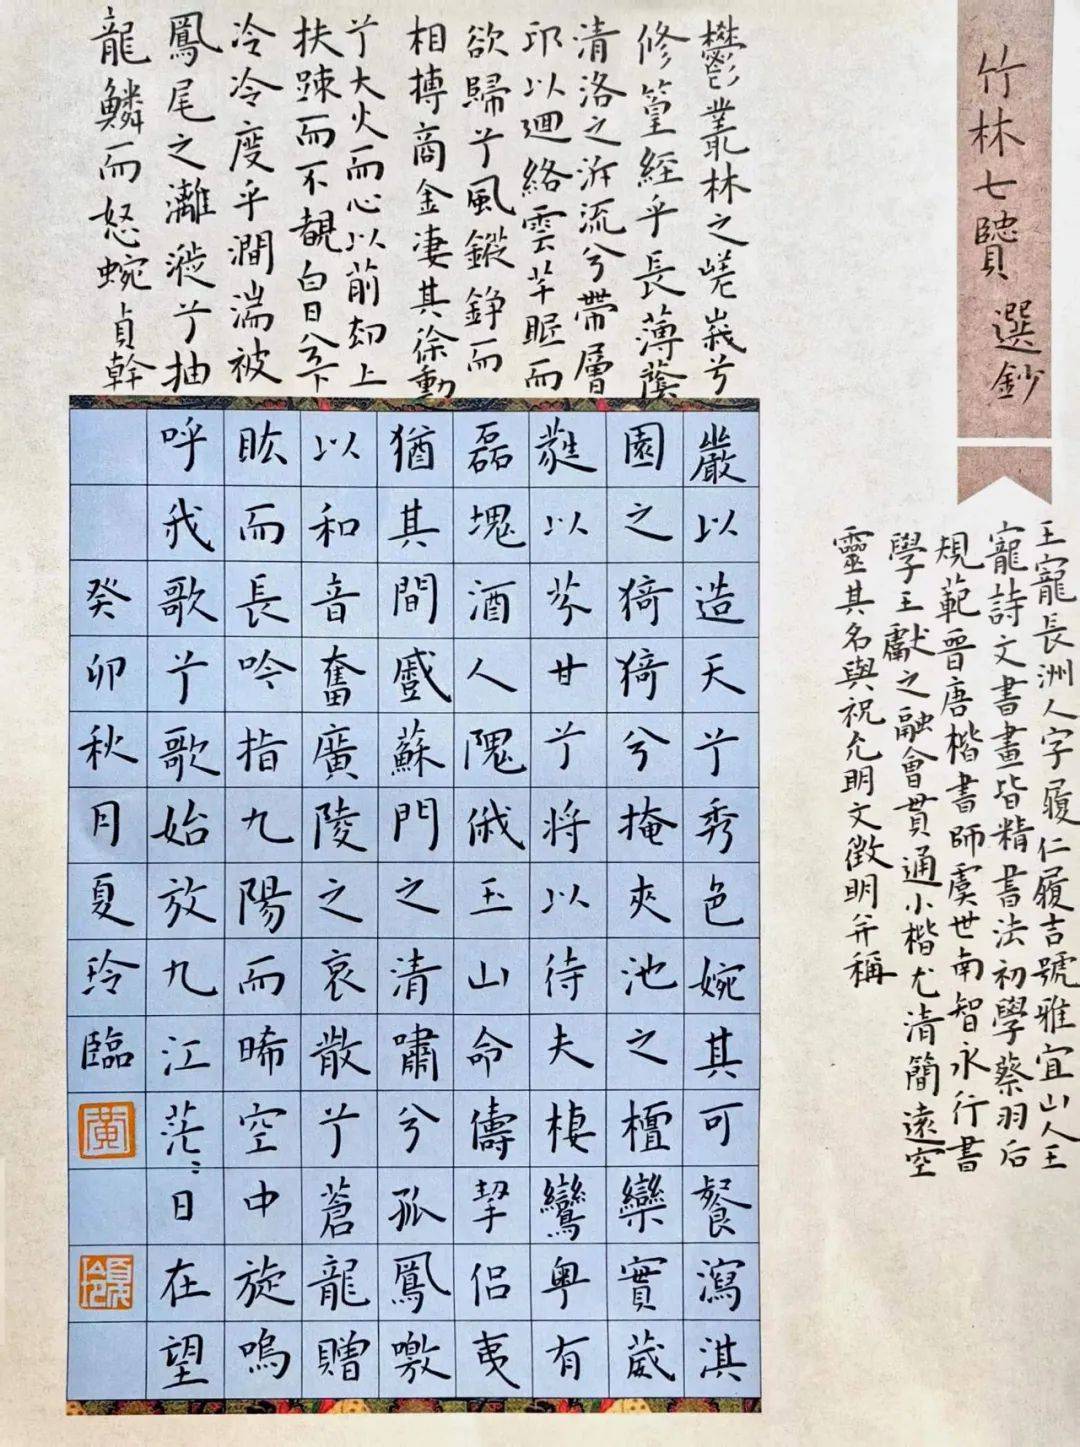 竹林七賢
選鈔
王寵長洲人字履仁履吉號雅宜山人王
寵詩文書畫皆精書法初學蔡羽后
規範晉唐楷書師虞世南智永行書
學王獻之融會貫通小楷尤清簡遠空
靈其名與祝允明文徵明并稱
鬱叢林之嵯峩兮
修篁經乎長薄
清洛之流兮帶層
邙以迴絡雲芊眠而
欲歸兮風鏦錚而
相摶商金凄其徐動
兮大火而心以前却上
扶踈而不覩白日兮下
冷冷度乎澗湍被
鳳尾之灕褷兮抽
龍鱗而怒蜿貞幹
巖以造天兮秀色婉其可餐瀉淇
園之猗猗兮掩夾池之檀欒實葳
蕤以芬甘兮將以待夫棲鸞粵有
磊塊酒人隗俄玉山命儔挈侶夷
猶其間感蘇門之清嘯兮孤鳳噭
以和音奮廣陵之哀散兮蒼龍贈
眩而長吟指九陽而晞空中旋嗚
呼我歌兮歌始放九江茫〻日在望
癸卯秋月夏玲臨
黃
夏玲